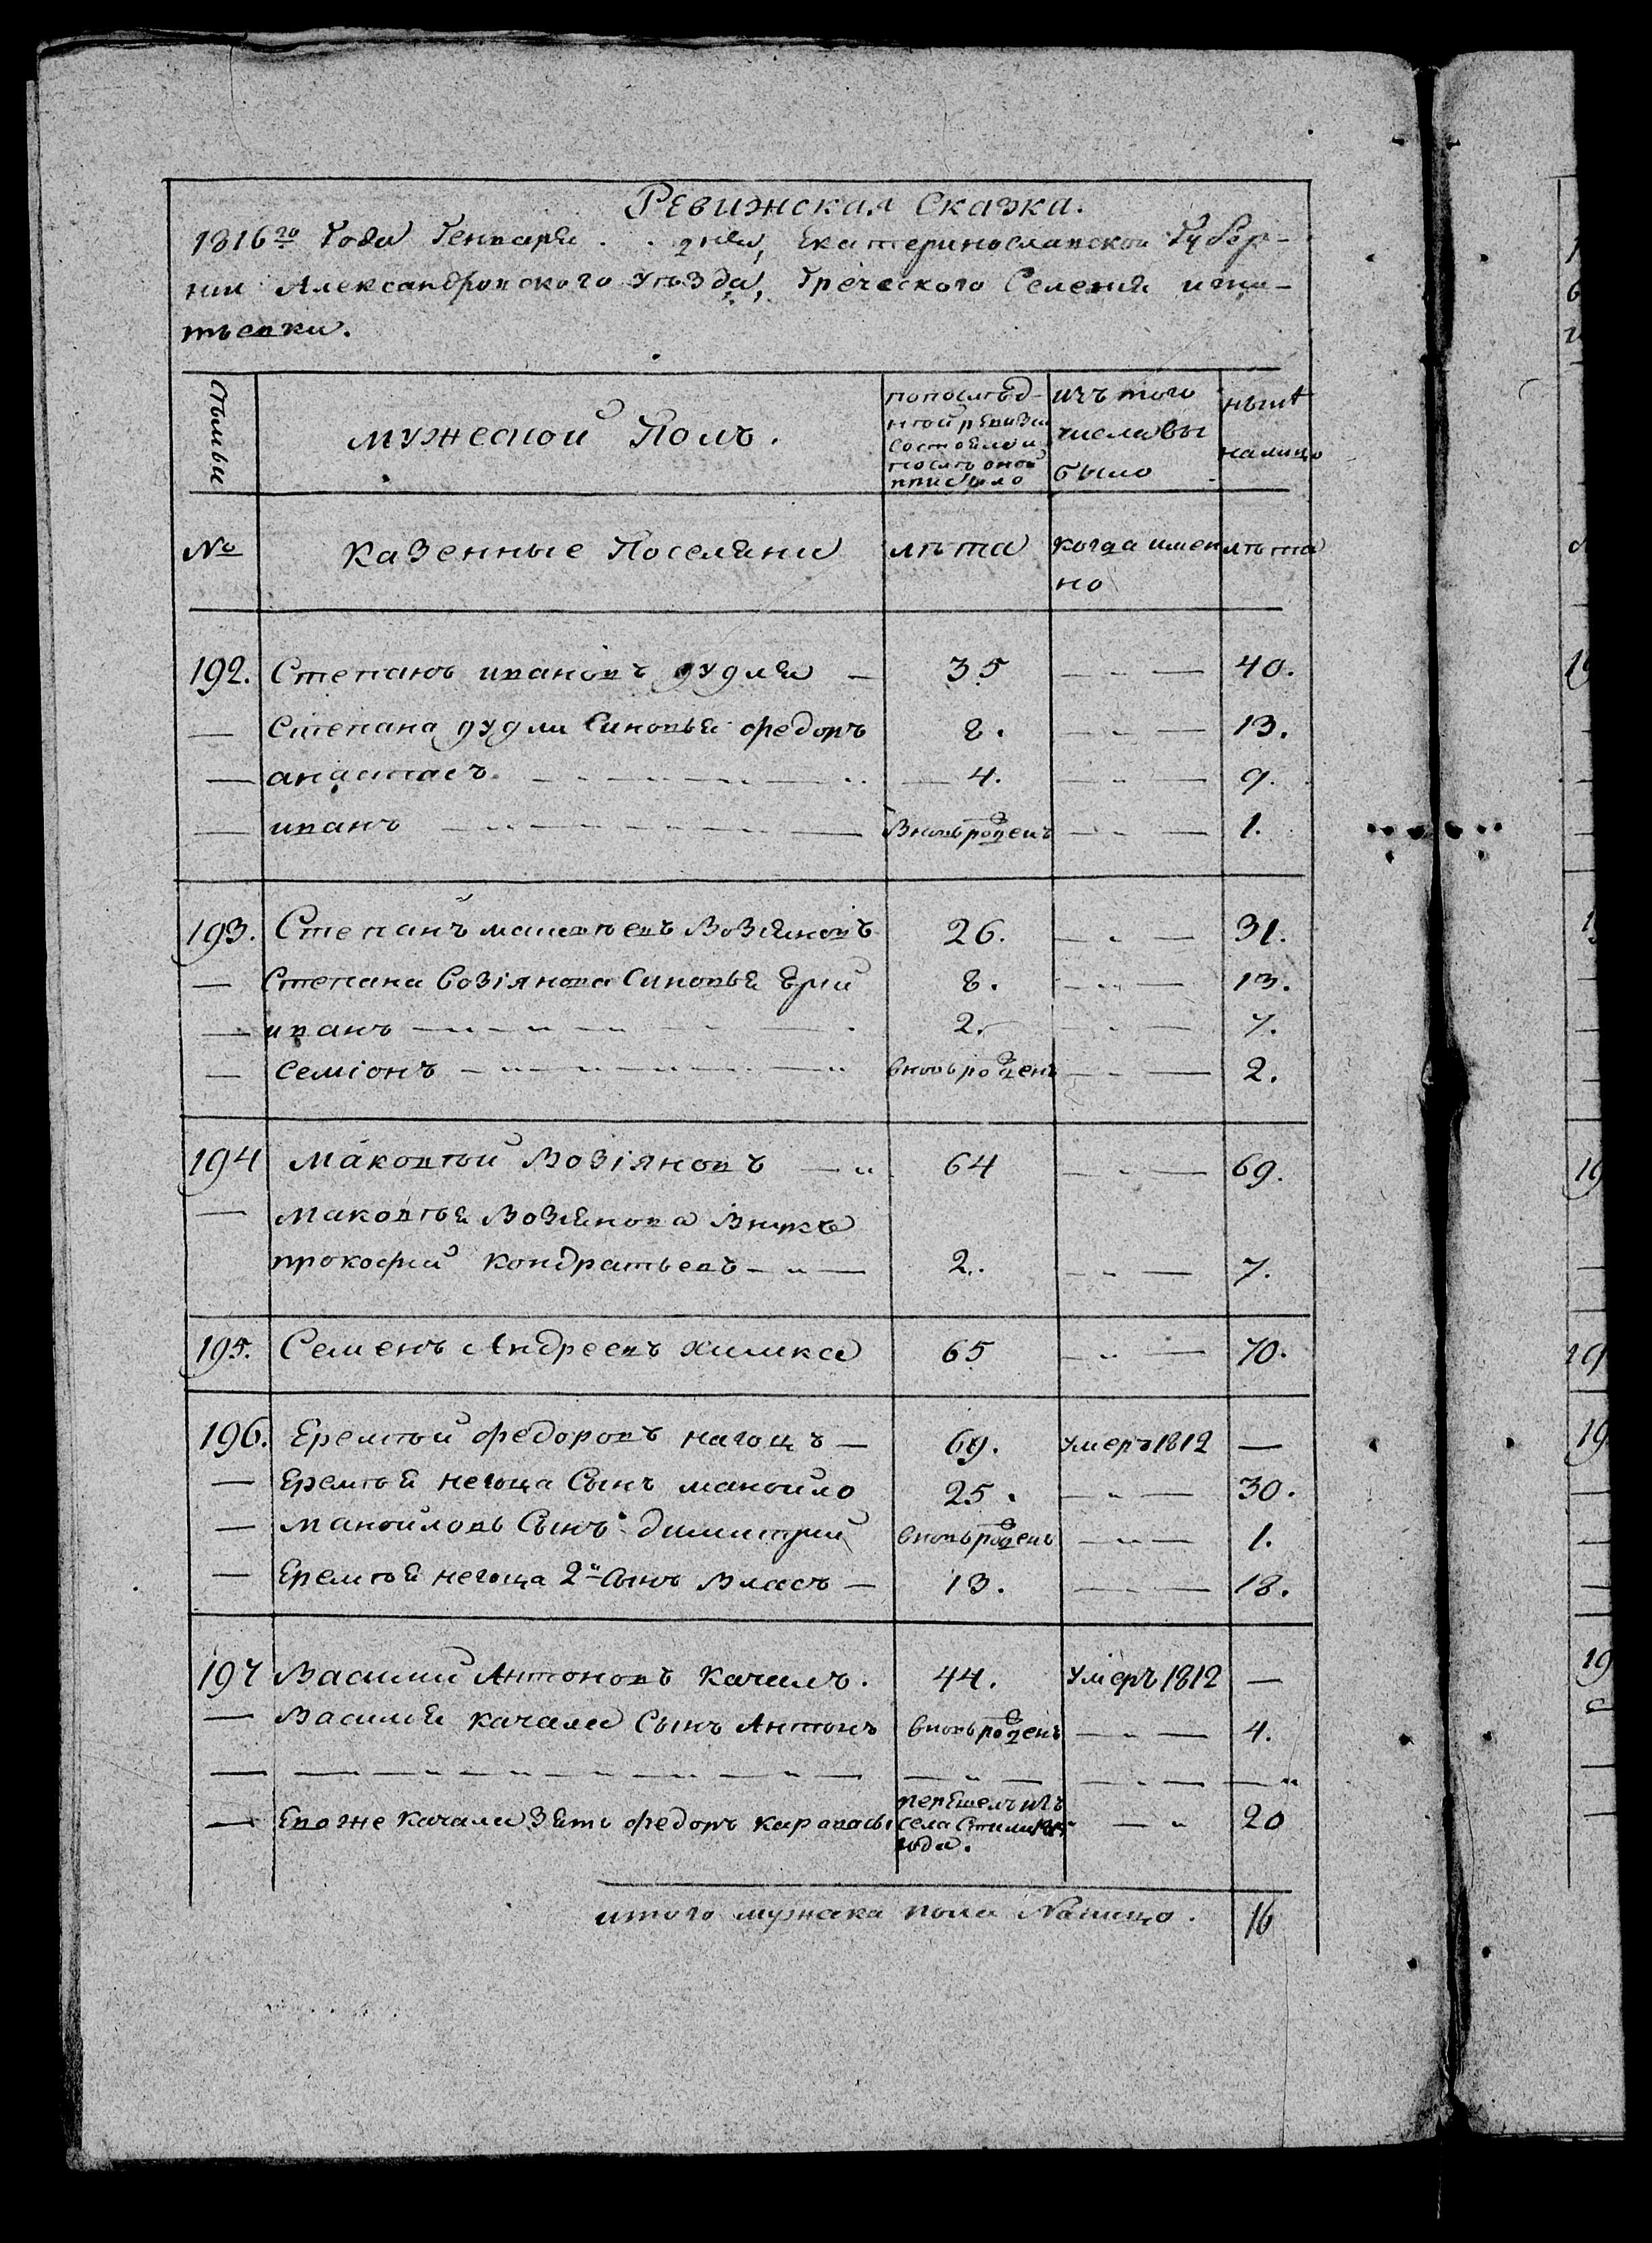 Ревижская Сказка.
1816го Года Генваря . . дня, Екатеринославской Губер-
нии Александровского уѣзда, Греческого Селения игна-
тьевки.
Сѣмьи
мужеской Полъ.
попослѣд-
нѣй ревизіи
состояло и
послѣ оной
прибыло
изъ того
числа вы
было
нынѣ
налицо
№
Казенные Поселяни
лѣта
когда имен
но
лѣта
192. Степанъ ивановъ дудля — 35 — „ — 40.
— Степана дудли Синовья федоръ 8. — „ — 13.
— анастасъ. — 4. — „ — 9.
— иванъ — Вновь рожденъ — „ — 1.
193. Степанъ Возияновъ 26. — „ — 31.
— Степана Возіянова Синовья Юрий 8. — „ — 13.
— иванъ — 2. — „ — 7.
— Семіонъ — вновь рожденъ — „ — 2.
194 Маковѣй Возіяновъ — „ 64 — „ — 69.
— Маковѣя Возиянова Внукъ
прокофий Кондратьевъ — „ — 2. — „ — 7.
195. Семенъ Андреевъ 65 — „ — 70.
196. Еремѣй федоровъ нагоцъ — 69. умеръ 1812 —
— Еремѣя негоца Сынъ манойло 25. — „ — 30.
— Манойловъ Сынъ димитрий вновь рожденъ — „ — 1.
— Еремѣя негоца 2й Сынъ Власъ — 13. — — — 18.
197 Василий Антоновъ Качалъ. 44. умеръ 1812 —
— Василия качала Сынъ Антонъ вновь рожденъ — „ — 4.
— — „ — „ — „ — „ — „ — — „ — — „ — — „
— Его же Качала Зять федоръ
перешелъ изъ
села
года.
— „ 20
итого мужска пола Налицо. 16